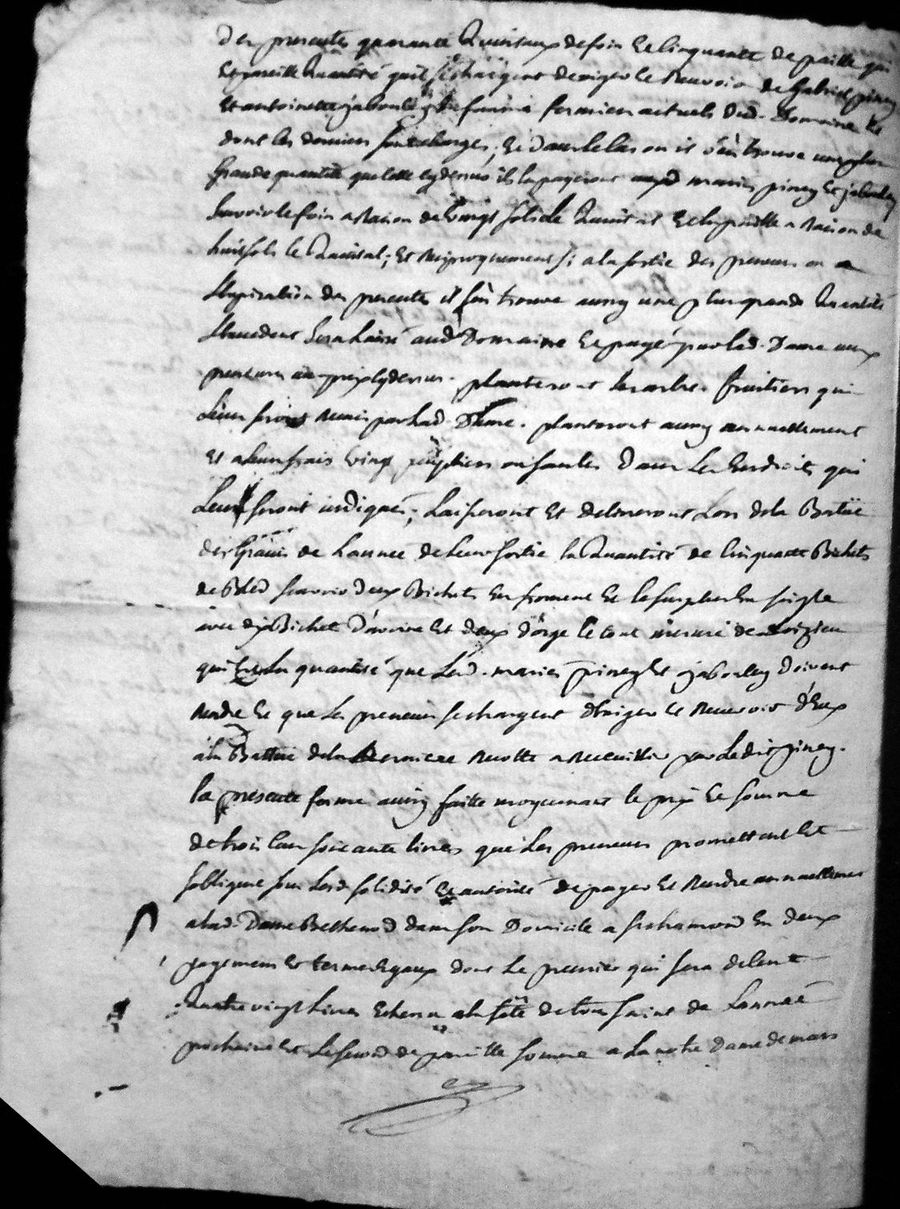 des presentes quarante Quintaux de foin et Cinquante de paille qui
Et pareille Quantité quil se chargent dexiger et Recevoir de Gabriel piney
Et antoinette jabouley sa femme fermiers actuels dud. Domaine et
dont les derniers sont charges, Et Dans le Cas ou il sen trouve une plus
Grande quantité que celle cydessus ils la payeront auxd mariés piney Et jabouley
Savoir le foin a Raison de vingt sols le Quintal Et la paille a Raison de
huit sols le Quintal; Et Reciproquement si a la sortie des preneurs ou a
Lexpiration des presentes il sen trouve aussy une plus grande Quantité
Lexcedent sera laissé aud Domaine Et payé par lad. Dame aux
preneurs au prix cydessus. planteront les arbres fruitiers qui
Leur seront Remis par lad. Dame. planteront aussy annuellement
Et a leurs frais vingt peupliers ou saules Dans les Endroits qui
Leur seront indiqués; Laisseront Et delivreront Lors de la Battüe
des Grains de Lannée de leur sortie la Quantité de Cinquante Bichets
de Bled scavoir deux Bichets En froment Et le surplus En seigle
avec dix Bichet Davoine Et deux d'orge le tout mesure de
qui Est la quantité que Lesd. mariés piney Et jabouley doivent
Rendre Et que les preneurs se chargent d'Exiger Et Recevoir d'Eux
a la Battüe de la derniere Recolte a Recueillir par Ledit piney.
la presente ferme aussy faitte moyennant le prix Et somme
de trois Cent soixante livres que Les preneurs promettent Et
sobligent sous Lesd solidité Et autorité de payer Et Rendre annuellement
a lad. Dame Bethenod dans son Domicile a st chamond En deux
payement Et termes Egaux dont Le premier qui sera de Cent
Quatre vingt livres Echerra a la fête de tous saints de Lannée
prochaine Et Le second de pareille somme a La notre Dame de mars